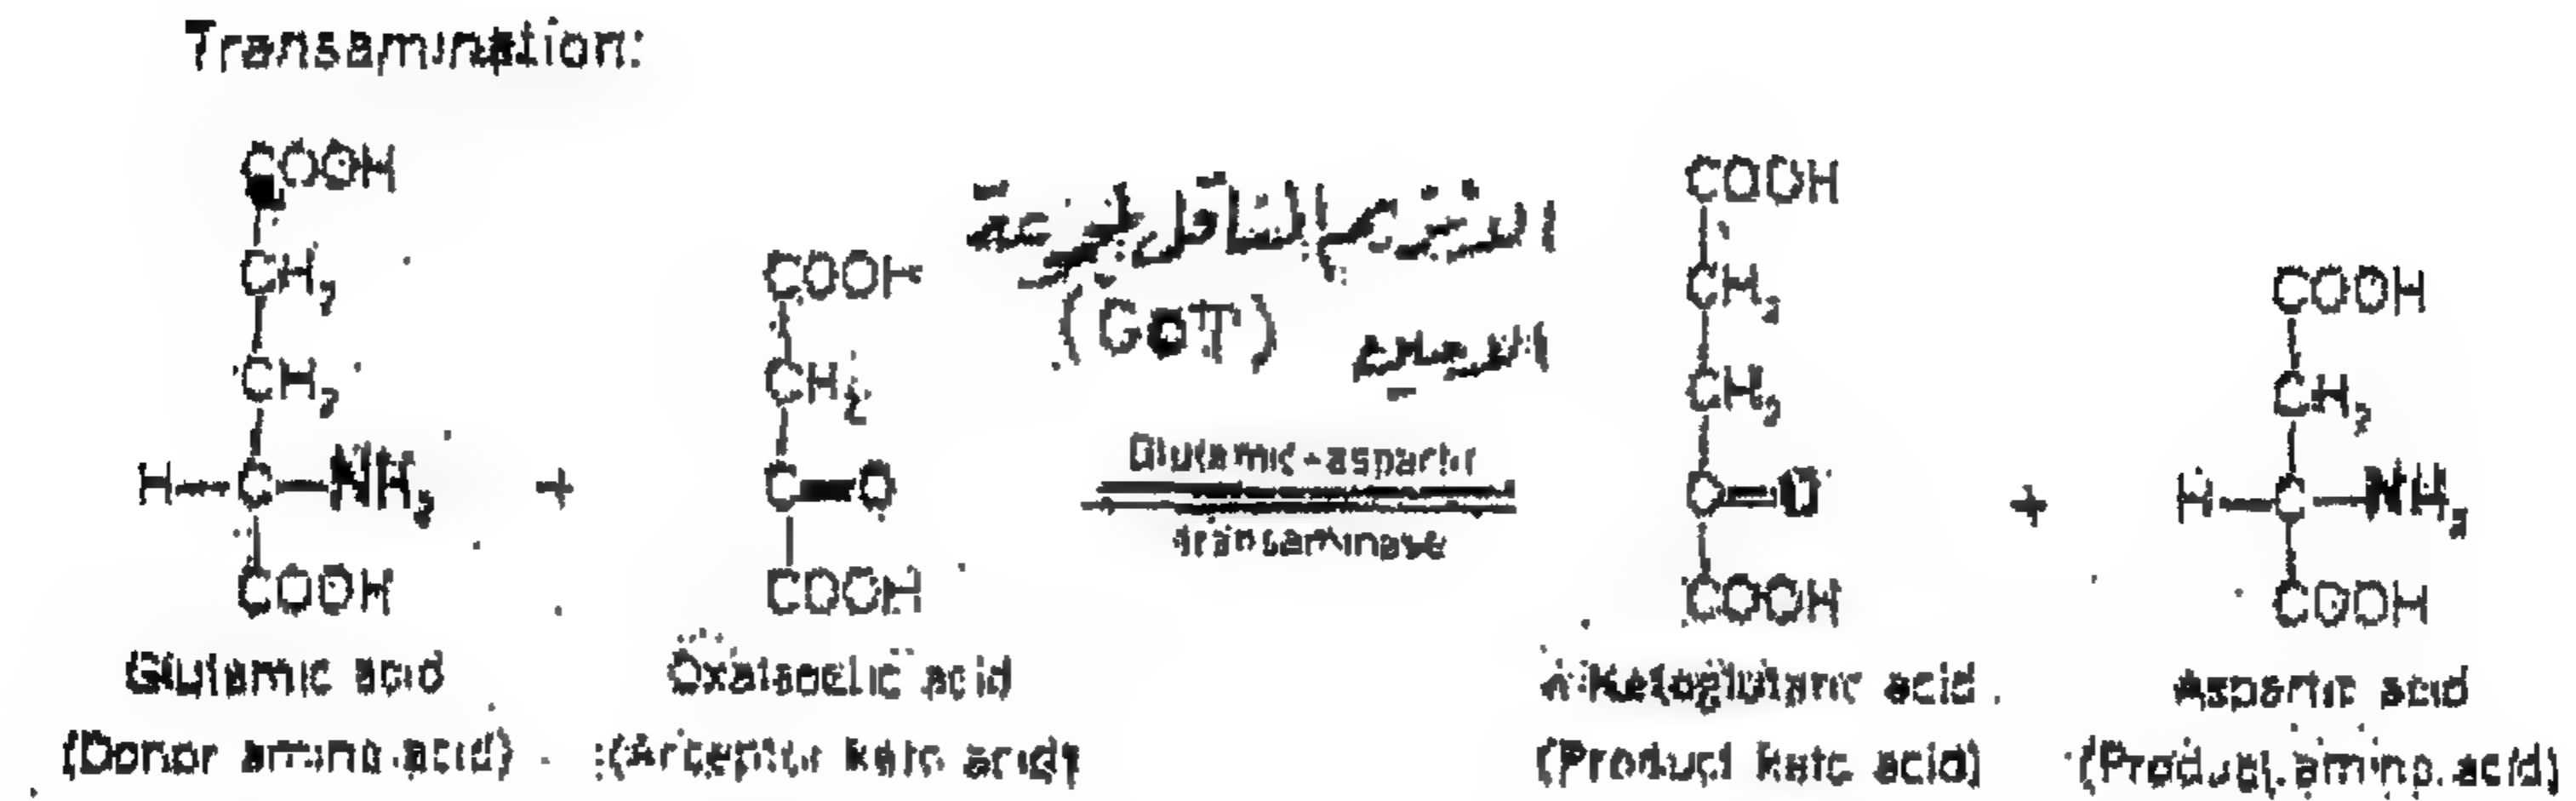 Transamination:
COOH
CH2
CH2
H—C—NH2
COOH
Glutamic acid
(Donor amino acid)
+
COOH
CH2
C=O
COOH
Oxalacetic acid
(Acceptor keto acid)
الانزيم الناقل لمجموعة
الامين (GOT)
Glutamic-aspartic
transaminase
COOH
CH2
CH2
C=O
COOH
Ketoglutaric acid
(Product keto acid)
+
COOH
CH2
H—C—NH2
COOH
Aspartic acid
(Product amino acid)